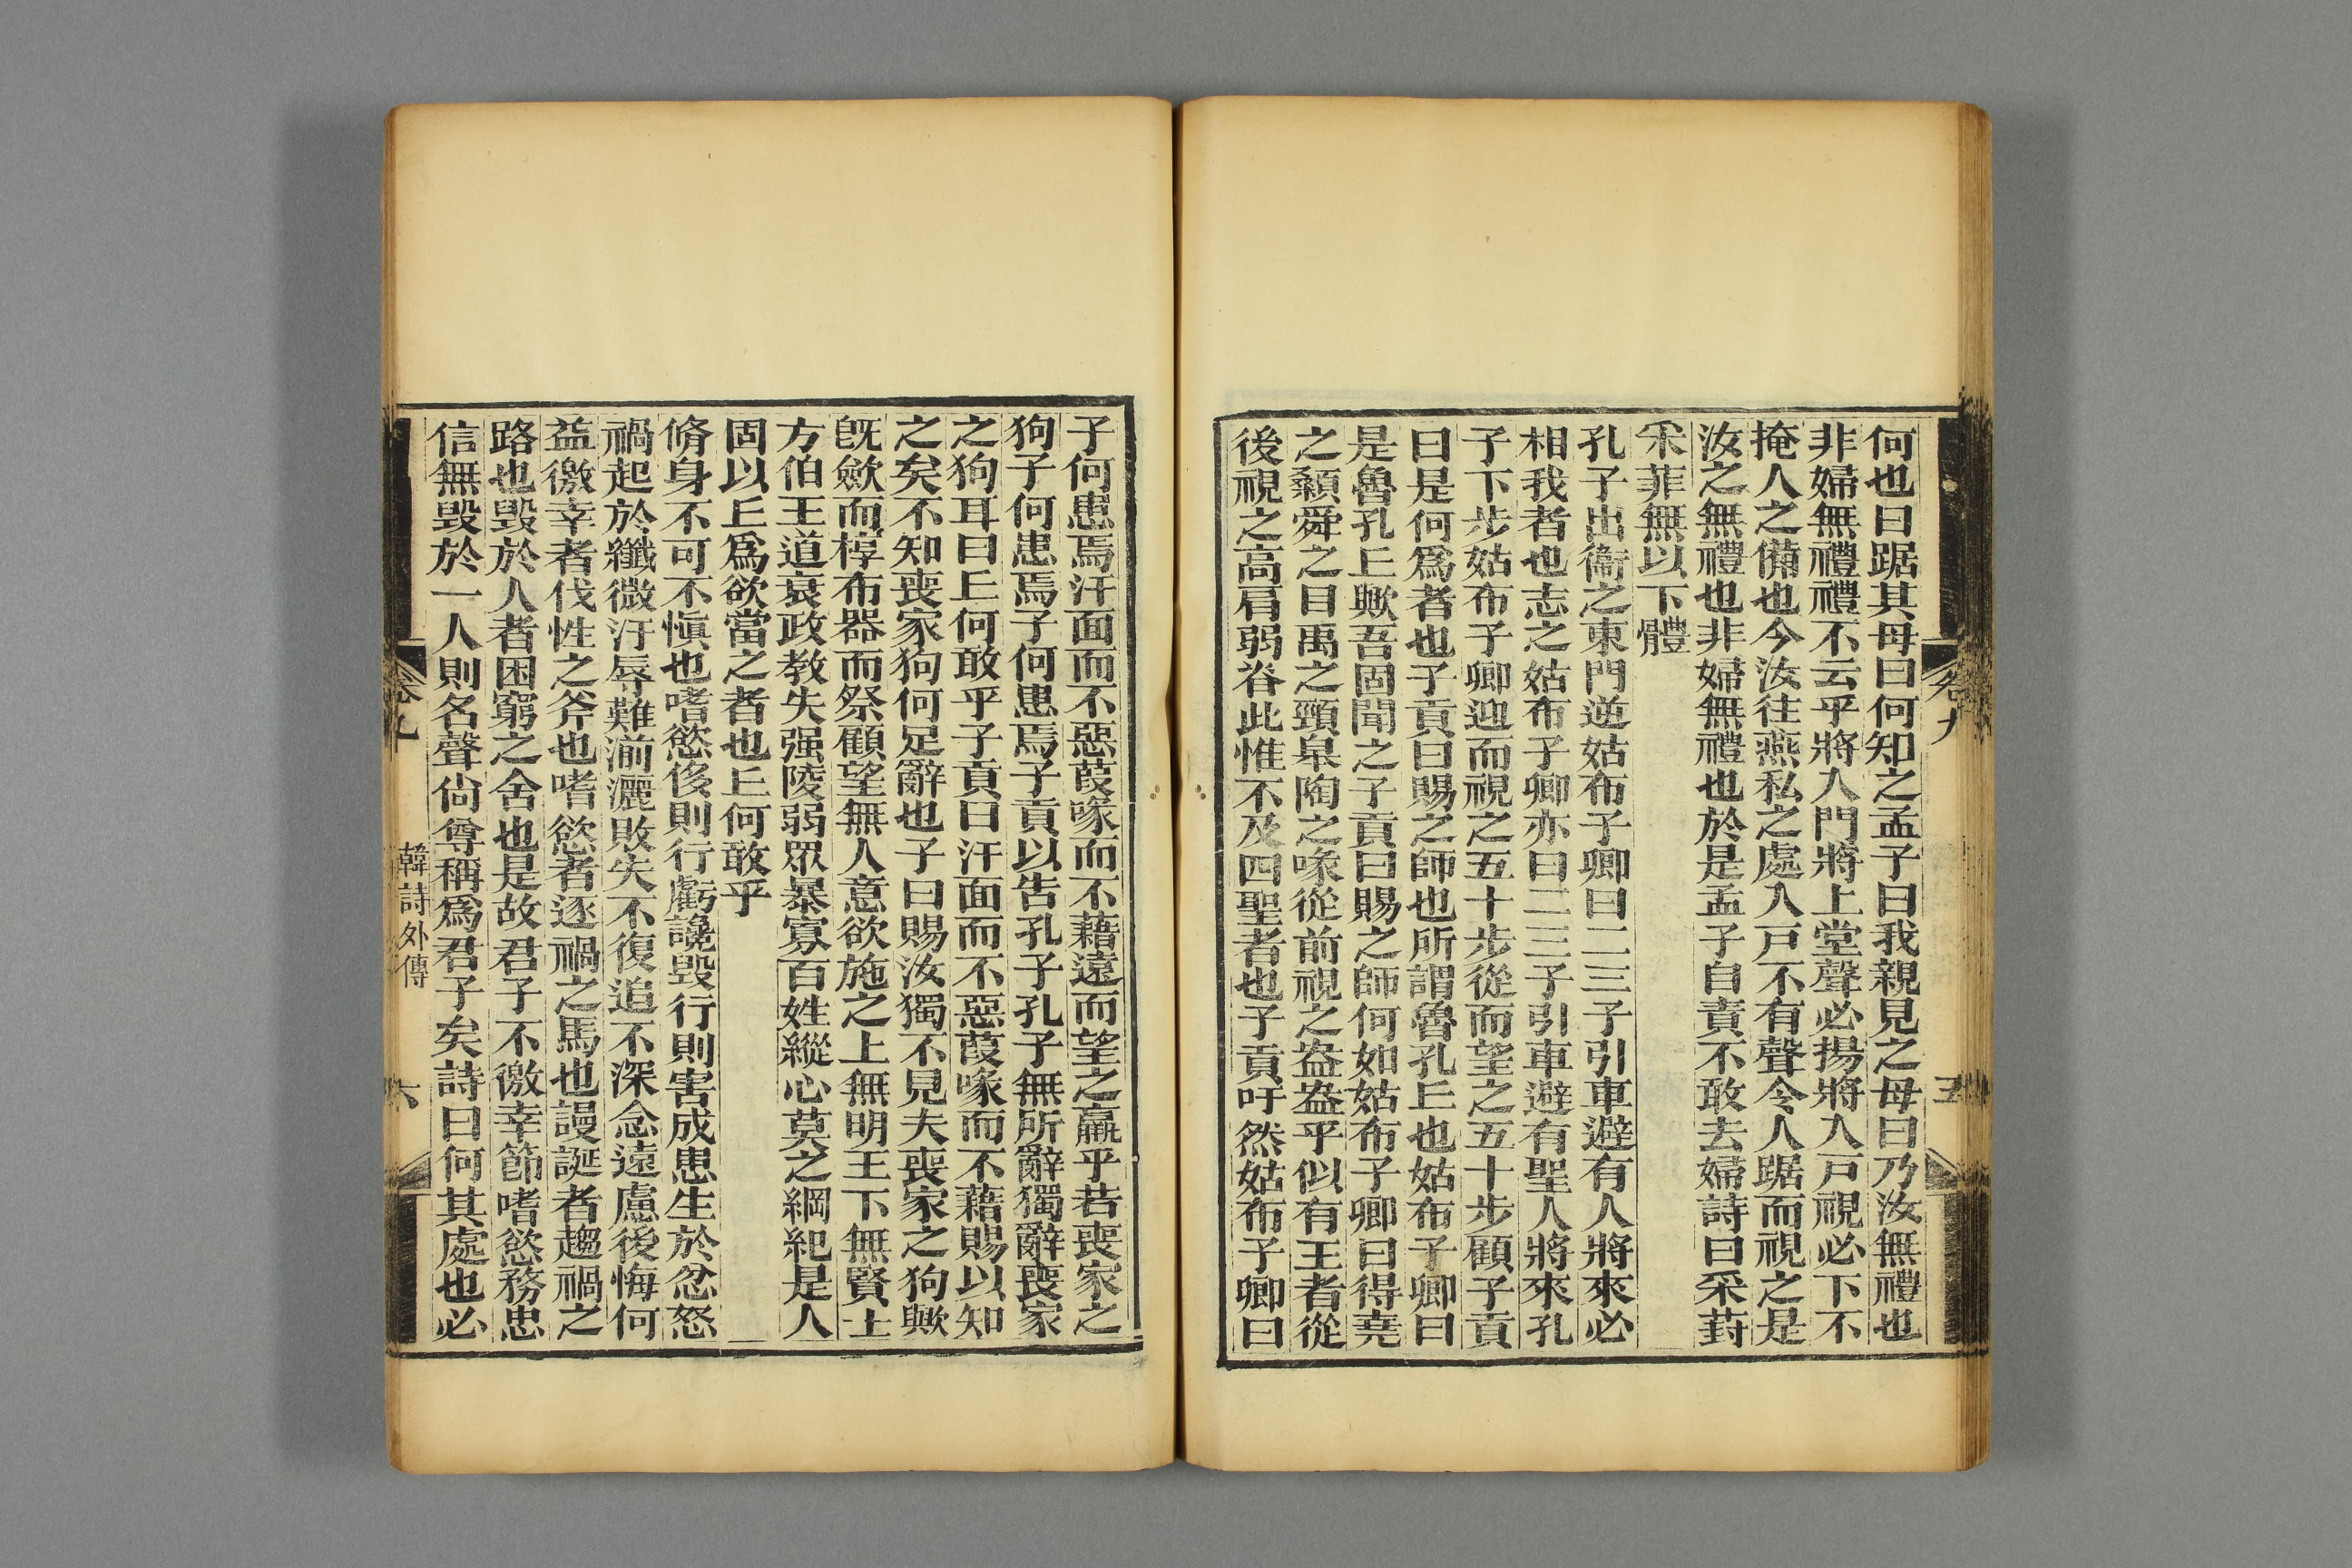 何也曰踞其母曰何知之孟子曰我親見之母曰乃汝無禮也
非婦無禮禮不云乎將入門將上堂聲必揚將入戸視必下不
掩人之備也今汝往燕私之處入戸不有聲令人踞而視之是
汝之無禮也非婦無禮也於是孟子自責不敢去婦詩曰采葑
采菲無以下體
孔子出衞之東門逆姑布子卿曰二三子引車避有人將來必
相我者也志之姑布子卿亦曰二三子引車避有聖人將來孔
子下步姑布子卿迎而視之五十步從而望之五十步顧子貢
曰是何爲者也子貢曰賜之師也所謂魯孔丘也姑布子卿曰
是魯孔丘歟吾固聞之子貢曰賜之師何如姑布子卿曰得堯
之顙舜之目禹之頸皋陶之喙從前視之盎盎乎似有王者從
後視之高肩弱脊此惟不及四聖者也子貢吁然姑布子卿曰
卷九
五
子何患焉汗面而不惡葭喙而不藉遠而望之羸乎若喪家之
狗子何患焉子何患焉子貢以告孔子孔子無所辭獨辭喪家
之狗耳曰丘何敢乎子貢曰汗面而不惡葭喙而不藉賜以知
之矣不知喪家狗何足辭也子曰賜汝獨不見夫喪家之狗歟
旣斂而椁布器而祭顧望無人意欲施之上無明王下無賢士
方伯王道衰政教失强陵弱眾暴寡百姓縱心莫之綱紀是人
固以丘爲欲當之者也丘何敢乎
脩身不可不愼也嗜慾侈則行虧讒毀行則害成患生於忿怒
禍起於纖微汙辱難湔灑敗失不復追不深念遠慮後悔何
益徼幸者伐性之斧也嗜慾者逐禍之馬也謾誕者趨禍之
路也毀於人者困窮之舍也是故君子不徼幸節嗜慾務忠
信無毀於一人則名聲尙尊稱爲君子矣詩曰何其處也必
卷九
韓詩外傳
六